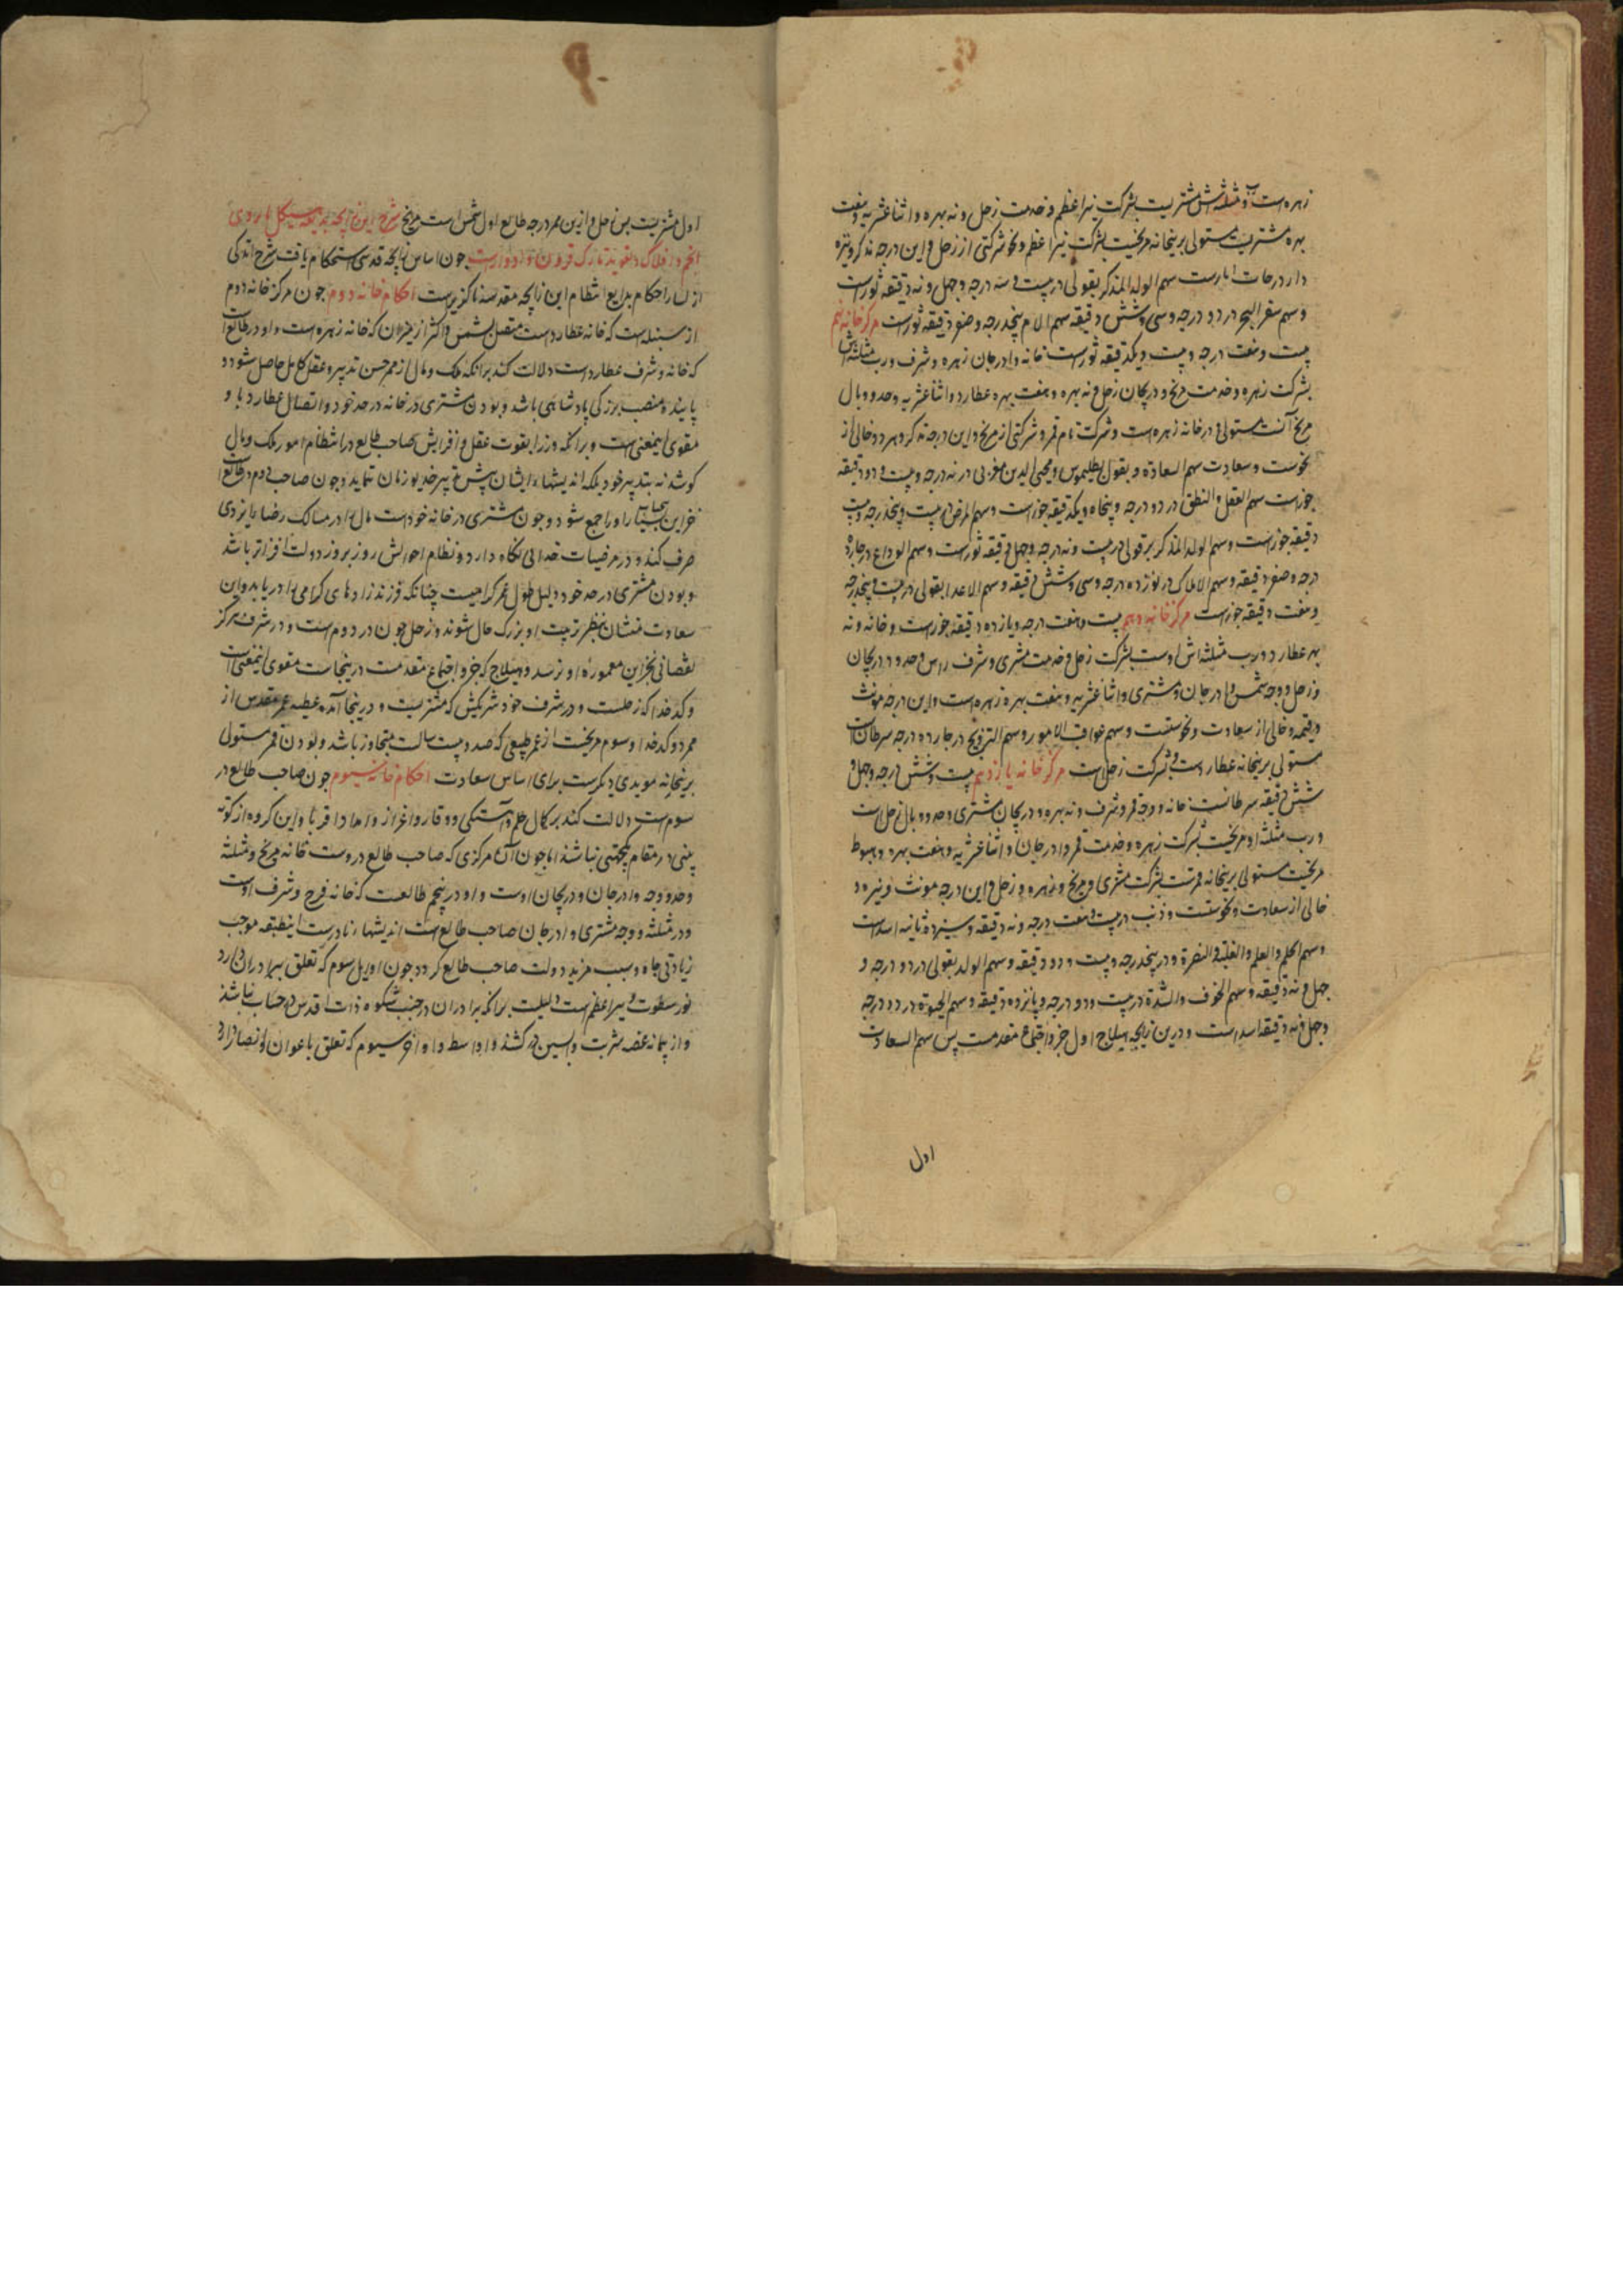 زهره است و مثلثه‌اش مشتریست بشرکت نیر اعظم و خدمت زحل و نه بهره و اثنا عشریه و هفت
بهره مشتریست مستولی برینخانه مریخست بشرکت نیر اعظم و نحو شرکتی از زحل و این درجه مذکر و نیره
دار درجات ابارست سهم الولد المذکر بقولی در بیست و سه درجه و چهل و نه دقیقه ثورست
و سهم سفر البحر در دو درجه و سی و شش دقیقه سهم الام پنجدرجه و صفر دقیقه ثورست مرکز خانه نهم
بیست و هفت درجه و بیست و یکدقیقه ثورست خانه و ادرجان زهره و شرف و رب مثلثه‌اش
بشرکت زهره و خدمت مریخ و دریجان زحل و نه بهره و هفت بهره عطارد و اثنا عشریه و حد و وبال
مریخ آنست مستولی در خانه زهره است و شرکت تام قمر و شرکتی از مریخ و این درجه مذکر و هر دو خالی از
نحوست و سعادت سهم السعادة و بقول بطلیموس و محیی الدین مغربی در نه درجه و بیست و دو دقیقه
جوزاست سهم العقل و النطق در دو درجه و پنجاه و یکدقیقه جوزاست و سهم المرض در بیست و پنجدرجه و بیست
دقیقه جوزاست و سهم الولد المذکر بر قولی در بیست و نه درجه و چهل دقیقه ثورست و سهم الوداع در چارده
درجه و صفر دقیقه و سهم الاملاک در نوزده درجه و سی و شش دقیقه و سهم الاعدا بقولی در بیست و پنجدرجه
و هفت دقیقه جوزاست مرکز خانه دهم بیست و هفت درجه و یازده دقیقه جوزاست و خانه و نه
بهر عطارد و رب مثلثه‌اش اوست بشرکت زحل و خدمت مشتری و شرف راس و حد و دریجان
و زحل و وجه شمس و ادرجان و مشتری و اثنا عشریه و هفت بهره زهره است و این درجه مونث
و قیمه و خالی از سعادت و نحوستست و سهم عواقب الامور و سهم التزویج در چارده درجه سرطان است
مستولی برینخانه عطاردست و بشرکت زحل است مرکز خانه یازدهم بیست و شش درجه و چهل و
شش دقیقه سرطانست خانه و وجه قمر و شرف و نه بهره و دریجان مشتری و حد و وبال زحل است
و رب مثلثه او مریخست بشرکت زهره و خدمت قمر و ادرجان و اثنا عشریه و هفت بهره و هبوط
مریخست مستولی برینخانه قمرست بشرکت مشتری و مریخ و زهره و زحل و این درجه مونث و نیره و
خالی از سعادت و نحوستست و ذنب در بیست و هفت درجه و نه دقیقه و سیزده ثانیه اسد است
و سهم الحلم و العلم و الغلبة و النصرة و در پنجدرجه و بیست و دو دقیقه و سهم الولد بقولی در دو درجه و
چهل و نه دقیقه و سهم الخوف و الشدة در بیست و دو درجه و پانزده دقیقه و سهم الحیوة در دو درجه
و چهل و نه دقیقه اسد است و درین زایجه هیلاج اول جزو اجتماع مقدمست پس سهم السعادت
اول
اول مشتریست پس زحل و ازین ممر درجه طالع اول شمس است مریخ شرح این زایچه بدیعه هیکل بازوی
انجم و افلاک و تعویذ تارک قرون و ادوارست چون اساس زایچه قدسی استحکام یافت شرح اندکی
از بسیار احکام بدایع انتظام این زایچه مقدسه ناگزیرست احکام خانه دوم چون مرکز خانه دوم
از سنبله است که خانه عطاردست متصل بشمس و اکثر از میزان که خانه زهره است و او در طالع است
که خانه و شرف عطاردست دلالت کند برآنکه ملک و مال از ممر حسن تدبیر و عقل کامل حاصل شود و
پاینده منصب بزرگی پادشاهی باشد و بودن مشتری در خانه در حد خود و اتصال عطارد با او
مقوی اینمعنی است و برآنکه وزرا بقوت عقل و افزایش صاحب طالع در انتظام امور ملک و مال
کوشند نه بتدبیر خود بلکه اندیشهای ایشان پیش تدبیر خدیو زمان نماید و چون صاحب دوم در طالع است
خزاین بیحساب او را جمع شود و چون مشتری در خانه خودست مال را در مسالک رضای ایزدی
صرف کند و در مرضیات خدائی نگاه دارد و نظام احوالش روز بروز دولت افزاتر باشد
و بودن مشتری در حد خود دلیل طول عمر گرامیست چنانکه فرزندزادهای گرامی را دریابد و این
سعادت منشان بنظر تربیت او بزرگ حال شوند و زحل چون در دوم است و در شرف هرگز
نقصانی بخزاین معموره او نرسد و هیلاج که جزو اجتماع مقدمست درینجاست مقوی اینمعنی است
و کدخدا که زحلست و در شرف خود شریکش که مشتریست و درینجا آمده عطیه عمر مقدس از
ممر دو کدخدا و سوم مریخست از عمر طبیعی که صد و بیست سالست متجاوز باشد و بودن قمر مستولی
برینخانه مویدی دیگرست برای اساس سعادت احکام خانه سیوم چون صاحب طالع در
سوم است دلالت کند بر کمال حلم و آهستگی و وقار و اعزاز و امداد اقربا و این گروه از کوته
بینی در مقام یکجهتی نباشند اما چون آن مرکزی که صاحب طالع دروست خانه مریخ و مثلثه
و حد و وجه و ادرجان و دریجان اوست و او در پنجم طالعست که خانه فرح و شرف اوست
و در مثلثه و وجه مشتری و ادرجان صاحب طالع است اندیشهای نادرست اینطبقه موجب
زیادتی جاه و سبب مزید دولت صاحب طالع گردد چون اوایل سوم که تعلق ببرادران دارد
نور سطوت نیر اعظم است دلیلست برآنکه برادران در جنب شکوه ذات اقدس در حساب نباشند
و از پیمانه غصه شربت واپسین در کشند و اواسط و اواخر سیوم که تعلق باعوان و انصار دارد